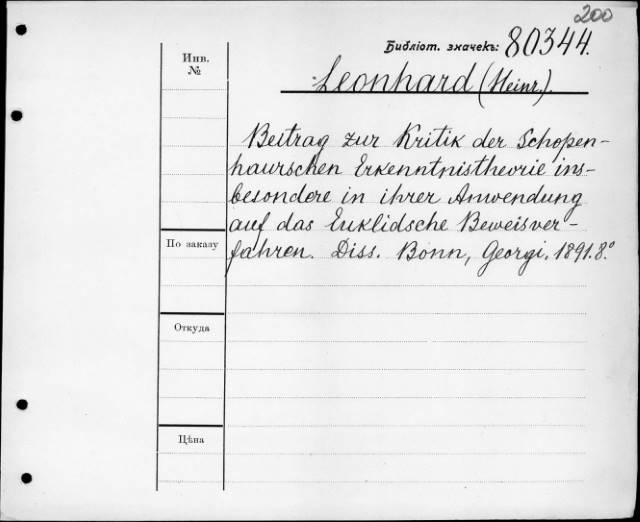 200
Библіот. значекъ: 80344.
Инв.
№
Leonhard (Heinr.).
Beitrag zur Kritik der Schopen-
haurschen Erkenntnistheorie ins-
besondere in ihrer Anwendung
auf das Euklidsche Beweisver-
По заказу
fahren. Diss. Bonn, Georgi. 1891. 8.°
Откуда
Цѣна